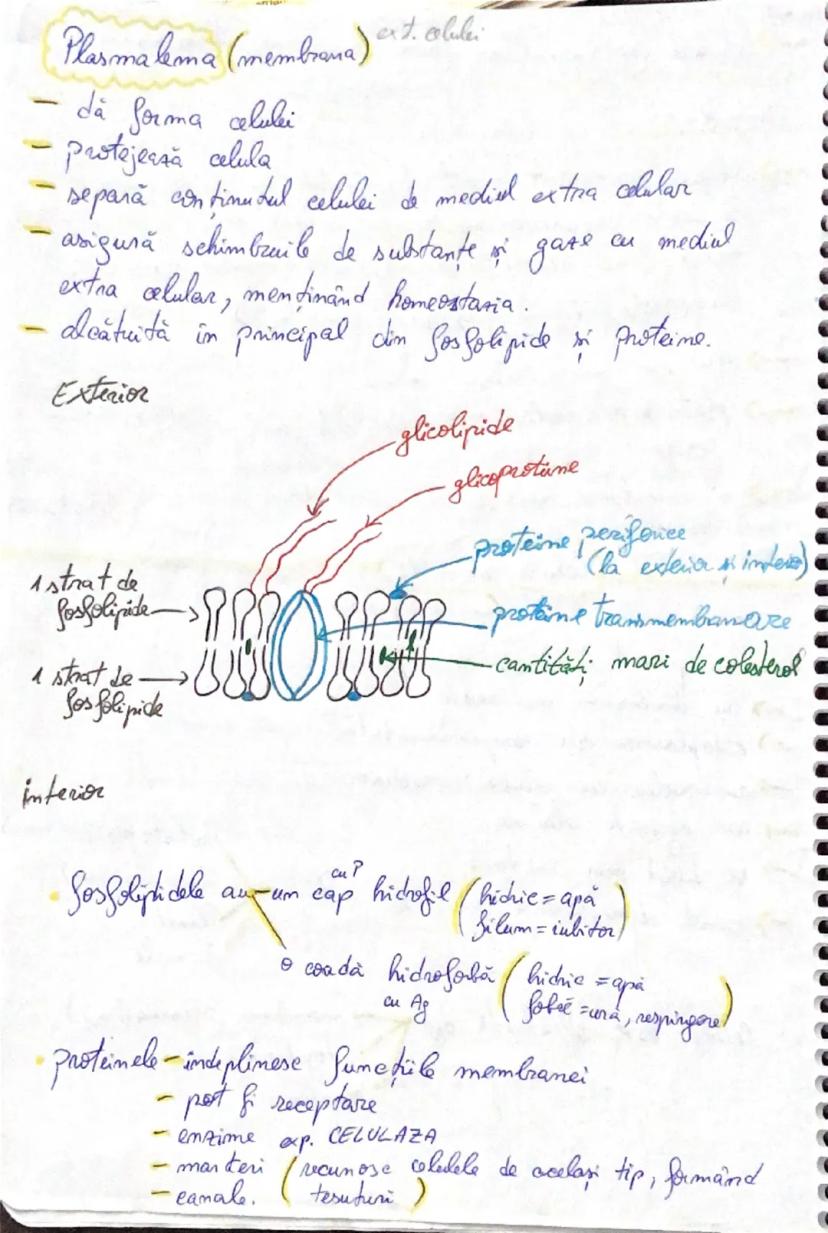 Plasmalema (membrana) ext. celulei
- dă forma celulei
- protejează celula
- separă conținutul celulei de mediul extra celular
- asigură schimburile de substanțe și gaze cu mediul
extra celular, menținând homeostazia.
- alcătuită în principal din fosfolipide și proteine.
Exterior
glicolipide
glicoproteine
proteine periferice
(la exterior și interior)
1 strat de
fosfolipide
proteine transmembranare
cantități mari de colesterol
1 strat de
fosfolipide
interior
cu P
• fosfolipidele au un cap hidrofil (hidric = apă
filum = iubitor)
o coadă hidrofobă (hidric = apă
cu Ag
fobie = ură, respingere)
• proteinele - îndeplinesc funcțiile membranei
- pot fi receptare
- enzime exp. CELULAZA
- markeri (recunosc celulele de același tip, formând
- canale. (țesuturi)